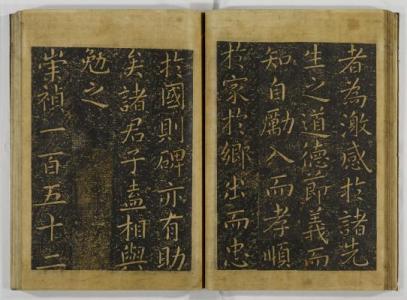 者為激感於諸先
生之道德節義而
知自勵入而孝順
於家於鄉出而忠
於國則碑亦有助
矣諸君子盍相與
勉之
崇禎一百五十二